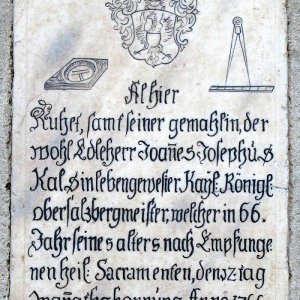 Alhier
Ruhet, samt seiner gemahlin, der
wohl Edle herr Joañes Josephus
Kals in leben gewester Kaÿs. Königl.
obersalzbergmeister, welcher in 66.
Jahr seines alters nach Empfange
nen heil. Sacramenten, den 27 tag
Anno